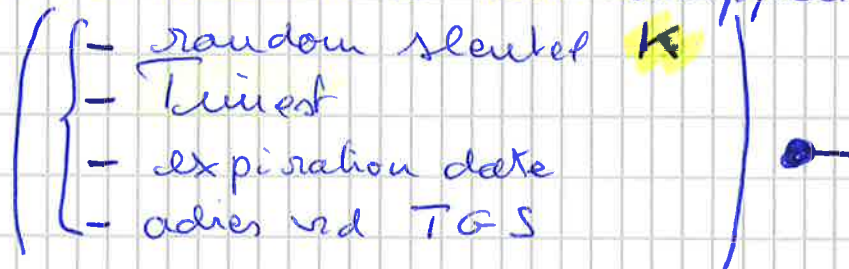 - random sleutel K
- Timest
- expiration date
- adres vd TGS